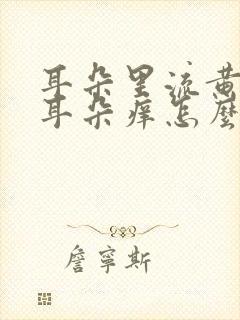 耳朵里流黄
耳朵痒怎麼
詹寧斯